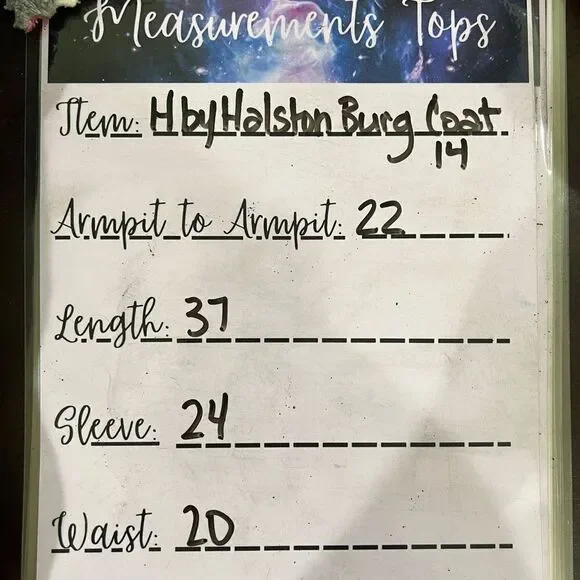 Measurements Tops
Item: H by Halston Burg Coat
14
Armpit to Armpit: 22
Length: 37
Sleeve: 24
Waist: 20